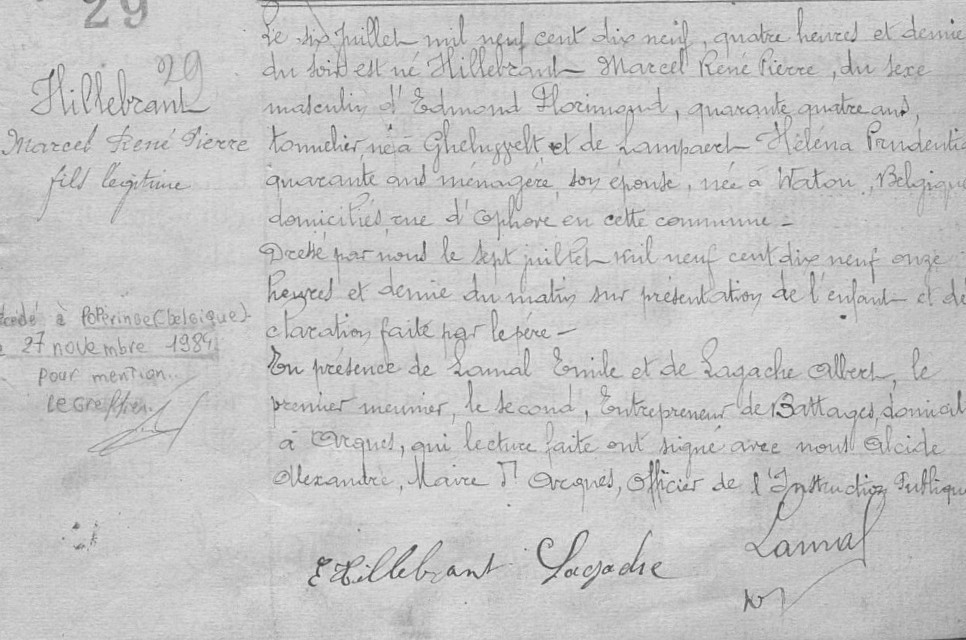 29
29
Hillebrant
Marcel René Pierre
fils légitime
décédé à Poperinge (Belgique)
le 27 novembre 1984
pour mention..
le Greffier.
Le six juillet mil neuf cent dix neuf, quatre heures et demie
du soir est né Hillebrant Marcel René Pierre, du sexe
masculin d'Edmond Florimond, quarante quatre ans,
tonnelier, né à Gheluvelt et de Lampaert Héléna Prudentia
quarante ans ménagère, son épouse, née à Waton, Belgique
domiciliés, rue d'Ophove en cette commune -
Dressé par nous le sept juillet mil neuf cent dix neuf onze
heures et demie du matin sur présentation de l'enfant et dé
claration faite par le père -
En présence de Lamal Emile et de Lagache Albert, le
premier meunier, le second, Entrepreneur de Battages, domicil
à Arques, qui lecture faite ont signé avec nous Alcide
Alexandre, Maire d'Arques, Officier de l'Instruction Publique
E Hillebrant Lagache Lamal